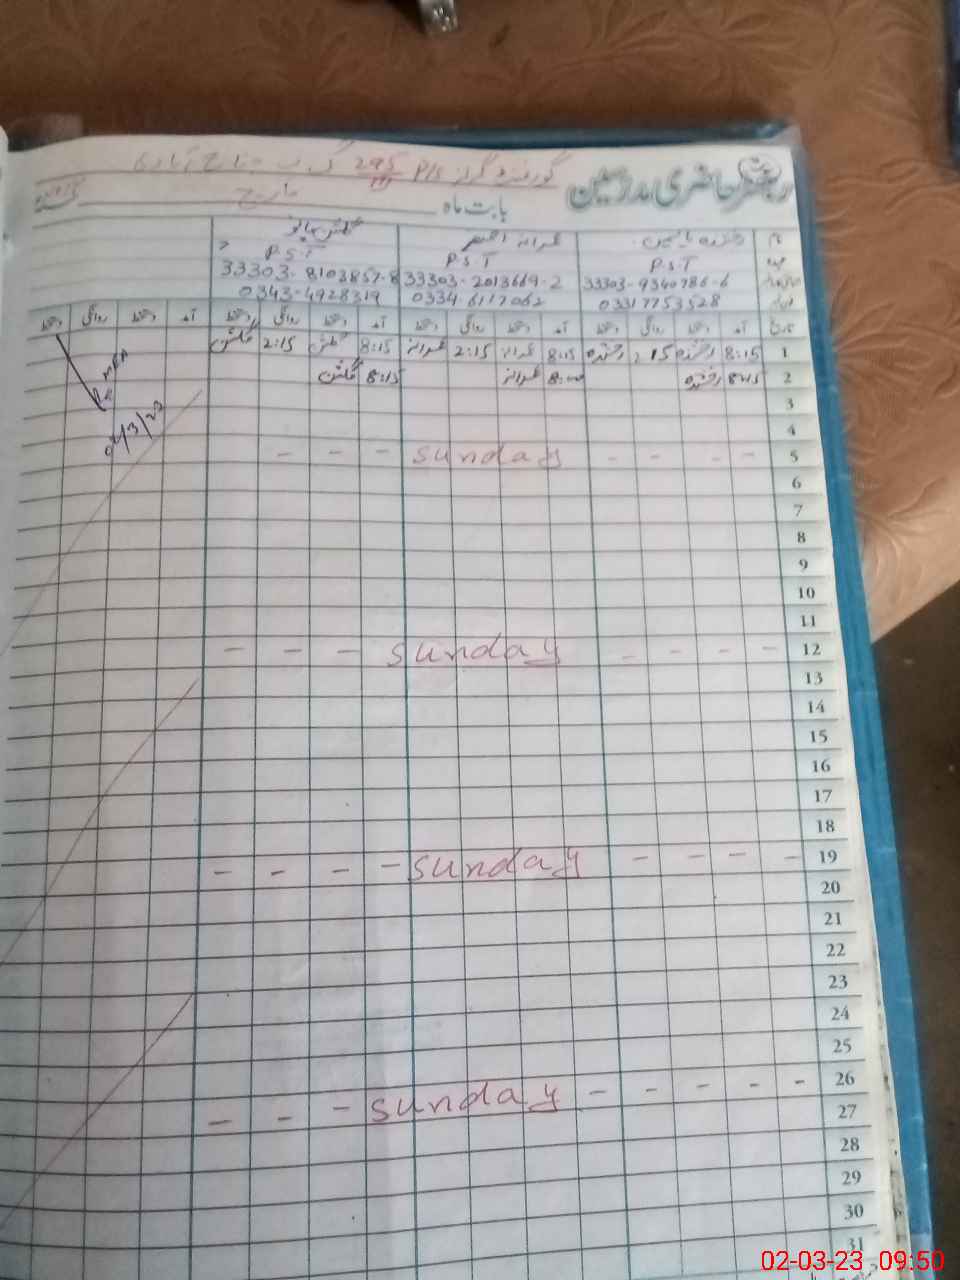 رجسٹر حاضری مدرسین گورنمنٹ گرلز P/S 295 گ ب
بابت ماہ مارچ
نام رخشندہ یاسمین عمرانہ اختر گلشن بانو
عہدہ P.S.T P.S.T P.S.T
33303-9340786-6 33303-2013669-2 33303-8103857-8
03317753528 0334 6117062 0343-4928319
تاریخ آمد دستخط روانگی دستخط آمد دستخط روانگی دستخط آمد دستخط روانگی دستخط آمد دستخط روانگی دستخط
1 8:15 رخشندہ 2:15 رخشندہ 8:15 عمرانہ 2:15 عمرانہ 8:15 گلشن 2:15 گلشن
2 8:15 رخشندہ عمرانہ 8:15 گلشن
MEA
02/3/23
3
4
5 - - - - sunday - - -
6
7
8
9
10
11
12 - - - - sunday - - -
13
14
15
16
17
18
19 - - - - sunday - - - -
20
21
22
23
24
25
26 - - - - - sunday - - -
27
28
29
30
31
02-03-23 09:50